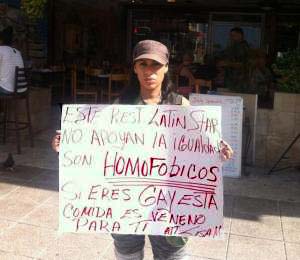 ESTE REST LATIN STAR
NO APOYAN LA IGUALDAD
SON HOMOFOBICOS
SI ERES GAY ESTA
COMIDA ES VENENO
PARA TI